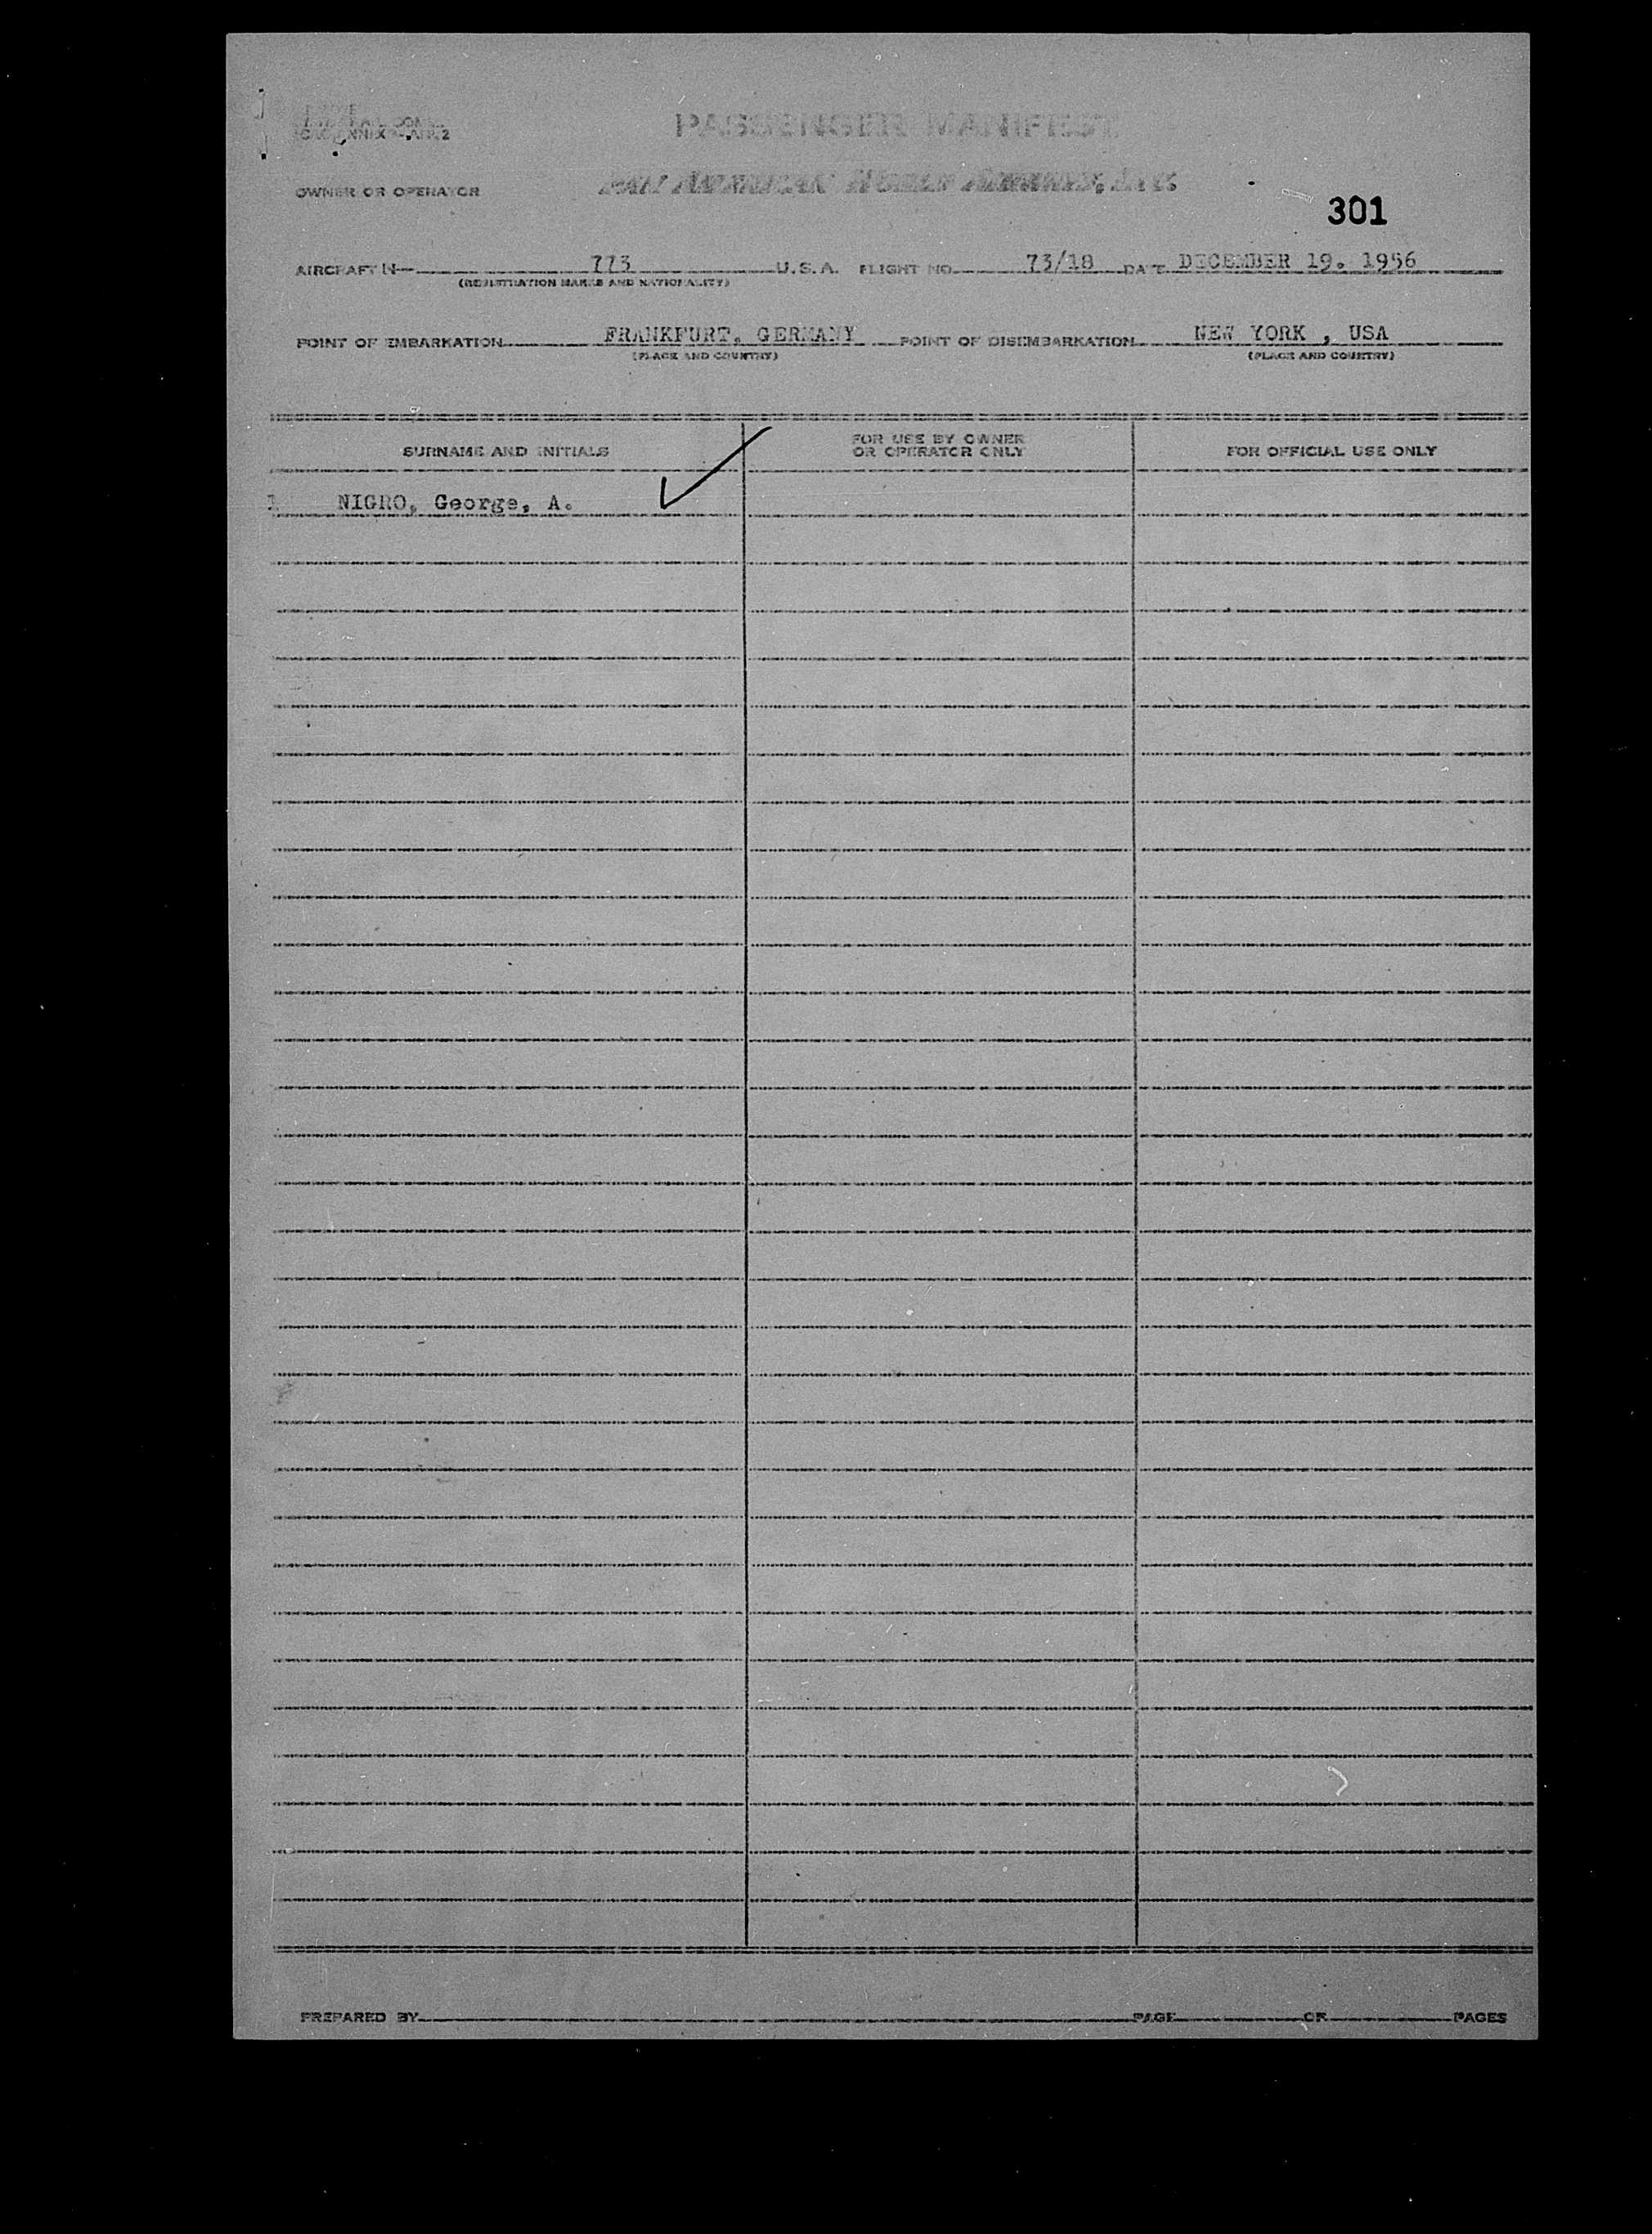 PASSENGER MANIFEST
OWNER OR OPERATOR PAN AMERICAN WORLD AIRWAYS, INC.
301
AIRCRAFT N— 773 U.S.A. FLIGHT NO. 73/18 DATE DECEMBER 19. 1956
(REGISTRATION MARKS AND NATIONALITY)
POINT OF EMBARKATION FRANKFURT, GERMANY POINT OF DISEMBARKATION NEW YORK , USA
(PLACE AND COUNTRY) (PLACE AND COUNTRY)
SURNAME AND INITIALS FOR USE BY OWNER OR OPERATOR ONLY FOR OFFICIAL USE ONLY
1 NIGRO, George, A.
PREPARED BY PAGE OF PAGES